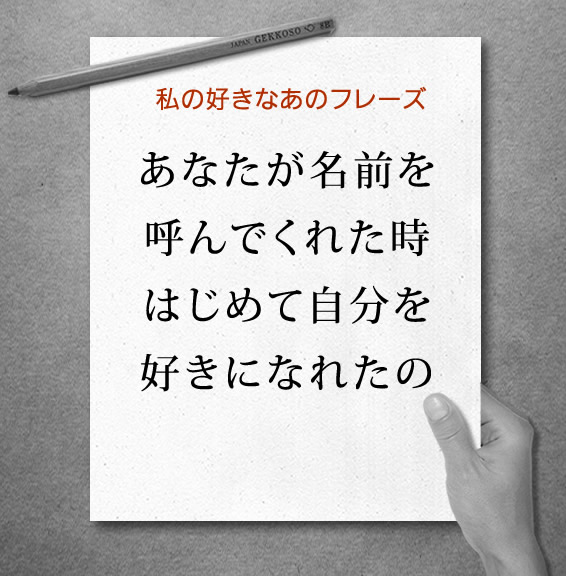 JAPAN GEKKOSO 8B
私の好きなあのフレーズ
あなたが名前を
呼んでくれた時
はじめて自分を
好きになれたの